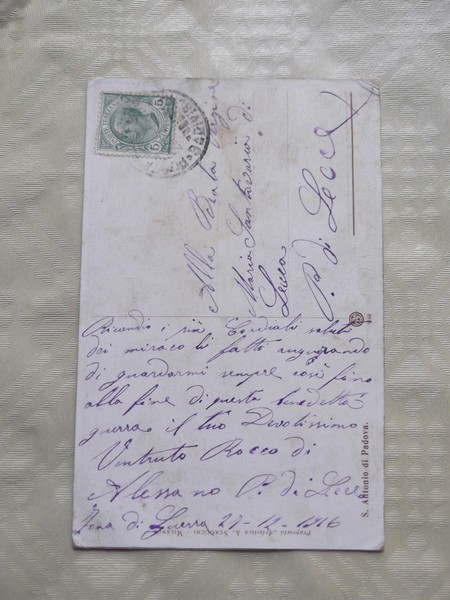 Alla Beata Vergine
Maria Santuario di
Lecce
P. di Lecce
Ricambio i più Cordiali saluti
dei miracoli fatti augurando
di guardarmi sempre così fino
alla fine di questa benedetta
guerra il tuo Devotissimo
Ventruto Rocco di
Alessano P. di Lecce
Zona di Guerra 27-12-1916
S. Antonio di Padova.
Proprietà Artistica A. Scrocchi - Milano